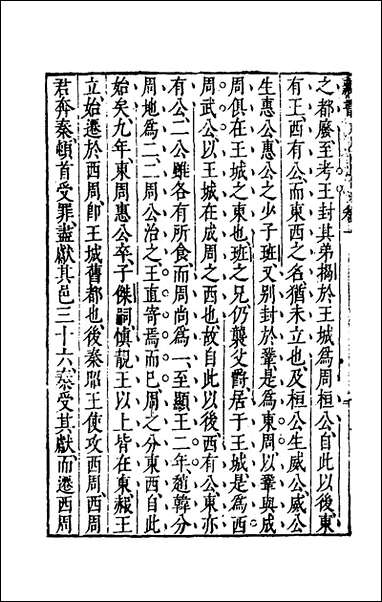 之都廢至考王封其弟揭於王城爲周桓公自此以後東
有王西有公而東西之名猶未立也及桓公生威公威公
生惠公惠公之少子班又别封於鞏是爲東周以鞏與成
周俱在王城之東也班之兄仍襲父爵居于王城是爲西
周武公以王城在成周之西也故自此以後西有公東亦
有公二公雖各有所食而周尚爲一至顯王二年趙韓分
周地爲二二周公治之王直寄焉而已周之分東西自此
始矣九年東周惠公卒子傑詞慎靚王以上皆在東赧王
立始遷於西周即王城舊都也後秦昭王使攻西周西周
君奔秦頓首受罪盡獻其邑三十六秦受其獻而遷西周